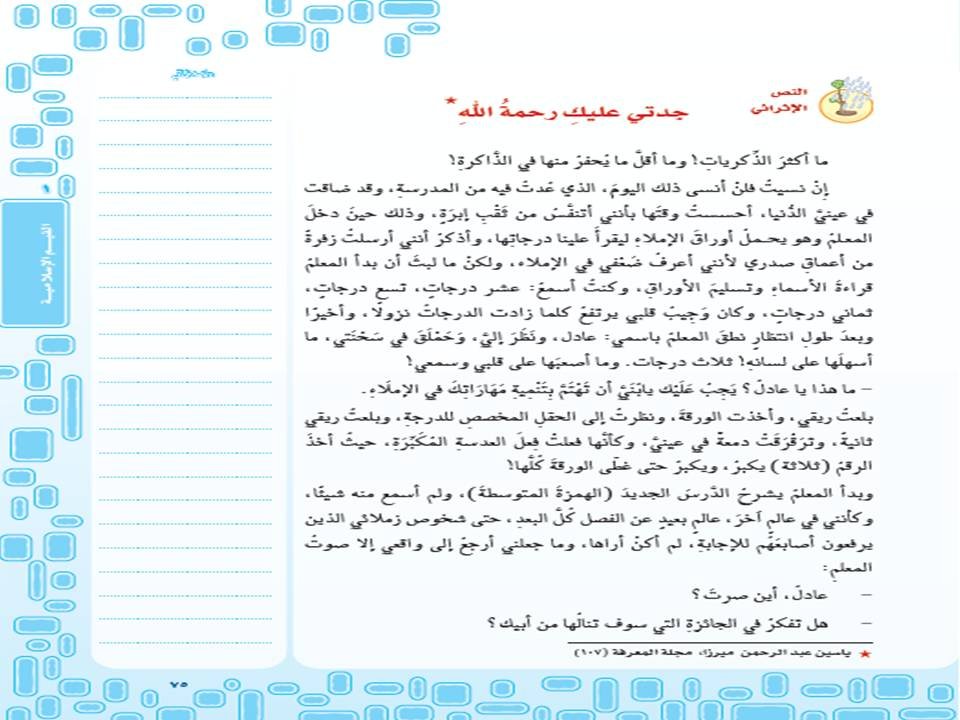 النص
الإثرائي
جدتي عليكِ رحمةُ اللهِ*
ما أكثرَ الذِّكرياتِ! وما أقلَّ ما يُحفرُ منها في الذَّاكرةِ!
إنْ نسيتُ فلنْ أنسى ذلك اليومَ، الذي عُدتُ فيه من المدرسةِ، وقد ضاقت
في عينيَّ الدُّنيا، أحسستُ وقتَها بأنني أتنفَّسُ من ثَقْبِ إبرَةٍ، وذلك حينَ دخلَ
المعلمُ وهو يحملُ أوراقَ الإملاءِ ليقرأَ علينا درجاتِها، وأذكرُ أنني أرسلتُ زفرةً
من أعماقِ صدري لأنني أعرفُ ضَعْفي في الإملاء، ولكنْ ما لبثَ أن بدأ المعلمُ
قراءةَ الأسماءِ وتسليمَ الأوراقِ، وكنتُ أسمعُ: عشر درجاتٍ، تسع درجاتٍ،
ثماني درجاتٍ، وكان وَجِيبُ قلبي يرتفعُ كلما زادت الدرجاتُ نزولًا، وأخيرًا
وبعدَ طولِ انتظارٍ نطقَ المعلمُ باسمي: عادل، ونَظَرَ إليَّ، وَحَمْلَقَ في سَحْنَتي، ما
أسهلَها على لسانِه! ثلاث درجات. وما أصعبَها على قلبي وسمعي!
– ما هذا يا عادلُ؟ يَجِبُ عَلَيْك يابُنَيَّ أن تَهْتَمَّ بِتَنْمِيةِ مَهَارَاتِكَ في الإملَاءِ.
بلعتُ ريقي، وأخذت الورقةَ، ونظرتُ إلى الحقلِ المخصصِ للدرجةِ، وبلعتُ ريقي
ثانيةً، وترَقْرَقَتْ دمعةٌ في عينيَّ، وكأنَّها فعلتْ فِعلَ العدسةِ المُكَبِّرَةِ، حيثُ أخذَ
الرقمُ (ثلاثة) يكبرُ، ويكبرُ حتى غطَّى الورقةَ كُلَّها!
وبدأ المعلمُ يشرحُ الدَّرسَ الجديدَ (الهمزةَ المتوسطةَ)، ولم أسمع منه شيئًا،
وكأنني في عالمٍ آخَرَ، عالمٍ بعيدٍ عن الفصل كُلَّ البعدِ، حتى شخوص زملائي الذين
يرفعون أصابعَهُم للإجابةِ، لم أكنْ أراها، وما جعلني أرجعُ إلى واقعي إلا صوتُ
المعلمِ:
– عادلُ، أين صرتَ؟
– هل تفكرُ في الجائزةِ التي سوف تنالُها من أبيك؟
★ ياسين عبد الرحمن ميرزا، مجلة المعرفة (١٠٧)
القيم الإسلامية
٧٥